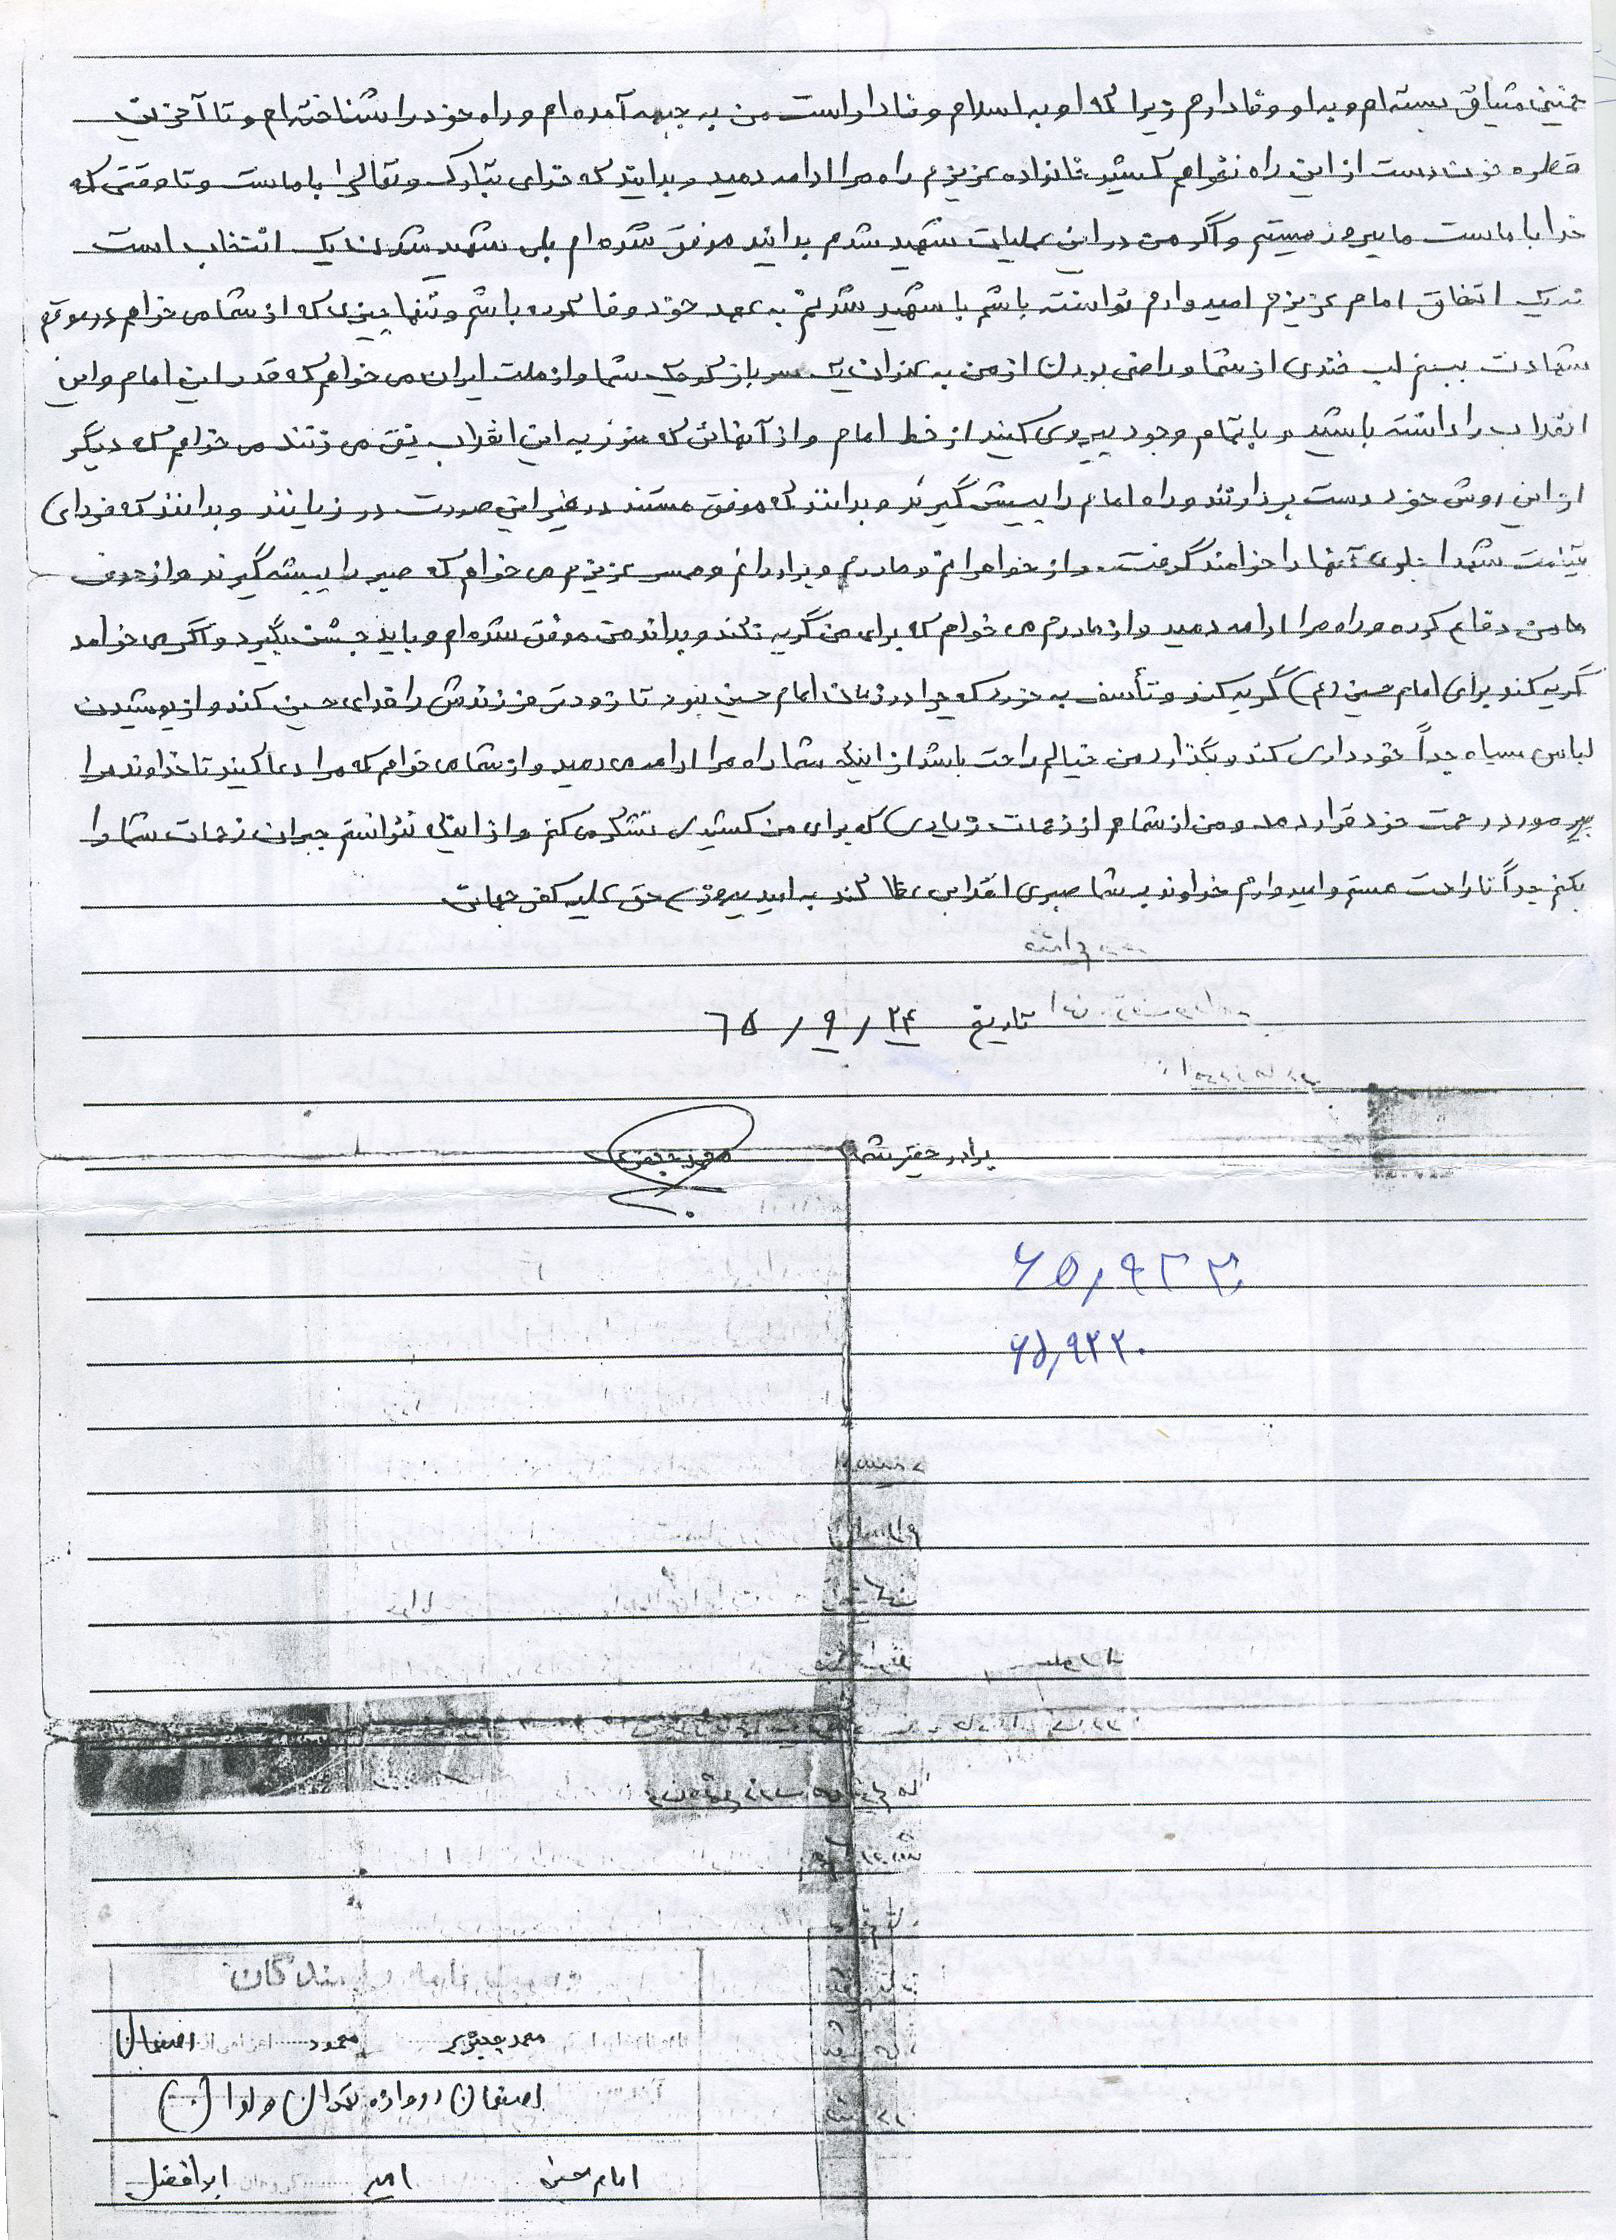 خمینی میثاق بسته ام و به او وفادارم زیرا که او به اسلام وفادار است من به جبهه آمده ام و راه خود را شناخته ام و تا آخرین
قطره خون دست از این راه نخواهم کشید خانواده عزیزم راه مرا ادامه دهید و بدانید که خدای تبارک و تعالی با ماست و تا وقتی که
خدا با ماست ما پیروز هستیم و اگر من در این عملیات شهید شدم بدانید موفق شده ام بلی شهید شدن یک انتخاب است
نه یک اتفاق امام عزیزم امیدوارم توانسته باشم با شهید شدنم به عهد خود وفا کرده باشم و تنها چیزی که از شما می خواهم در موقع
شهادت ببینم لب خندی از شما و راضی بودن از من به عنوان یک سرباز کوچک شما و از ملت ایران می خواهم که قدر این امام و این
انقلاب را داشته باشید و با تمام وجود پیروی کنید از خط امام و از آنهائی که هنوز به این انقلاب نق می زنند می خواهم که دیگر
از این روش خود دست بردارند و راه امام را پیش گیرند و بدانند که موفق هستند در غیر این صورت در زیانند و بدانند که فردای
قیامت شهدا جلوی آنها را خواهند گرفت. و از خواهرانم و مادرم و برادرانم و همسر عزیزم می خواهم که صبر را پیشه گیرند و از هدف
ما من دفاع کرده و راه مرا ادامه دهید و از مادرم می خواهم که برای من گریه نکند و بداند من موفق شده ام و باید جشن بگیرد و اگر می خواهد
گریه کند برای امام حسین (ع) گریه کند و تأسف به خورد که چرا در زمان امام حسین نبود تا زودتر فرزندش را فدای حسین کند و از پوشیدن
لباس سیاه جداً خودداری کند و بگذارد من خیالم راحت باشد از اینکه شما راه مرا ادامه می دهید و از شما می خواهم که مرا دعا کنید تا خداوند مرا
مورد رحمت خود قرار دهد و من از شما هم از زحمات زیادی که برای من کشیدی تشکر می کنم و از اینکه نتوانستم جبران زحمات شما را
بکنم جداً ناراحت هستم و امیدوارم خداوند به شما صبری انقلابی عطا کند به امید پیروزی حق علیه کفر جهانی
تاریخ ۲۴ / ۹ / ۶۵
برادر حقیر شما محمد جعفری
۶۵٫۹۲۲۰
۶۵٫۹۲۲۰
محمد جعفری محمود اصفهان
اصفهان دروازه تهران
امام حسین امیر ابوالفضل